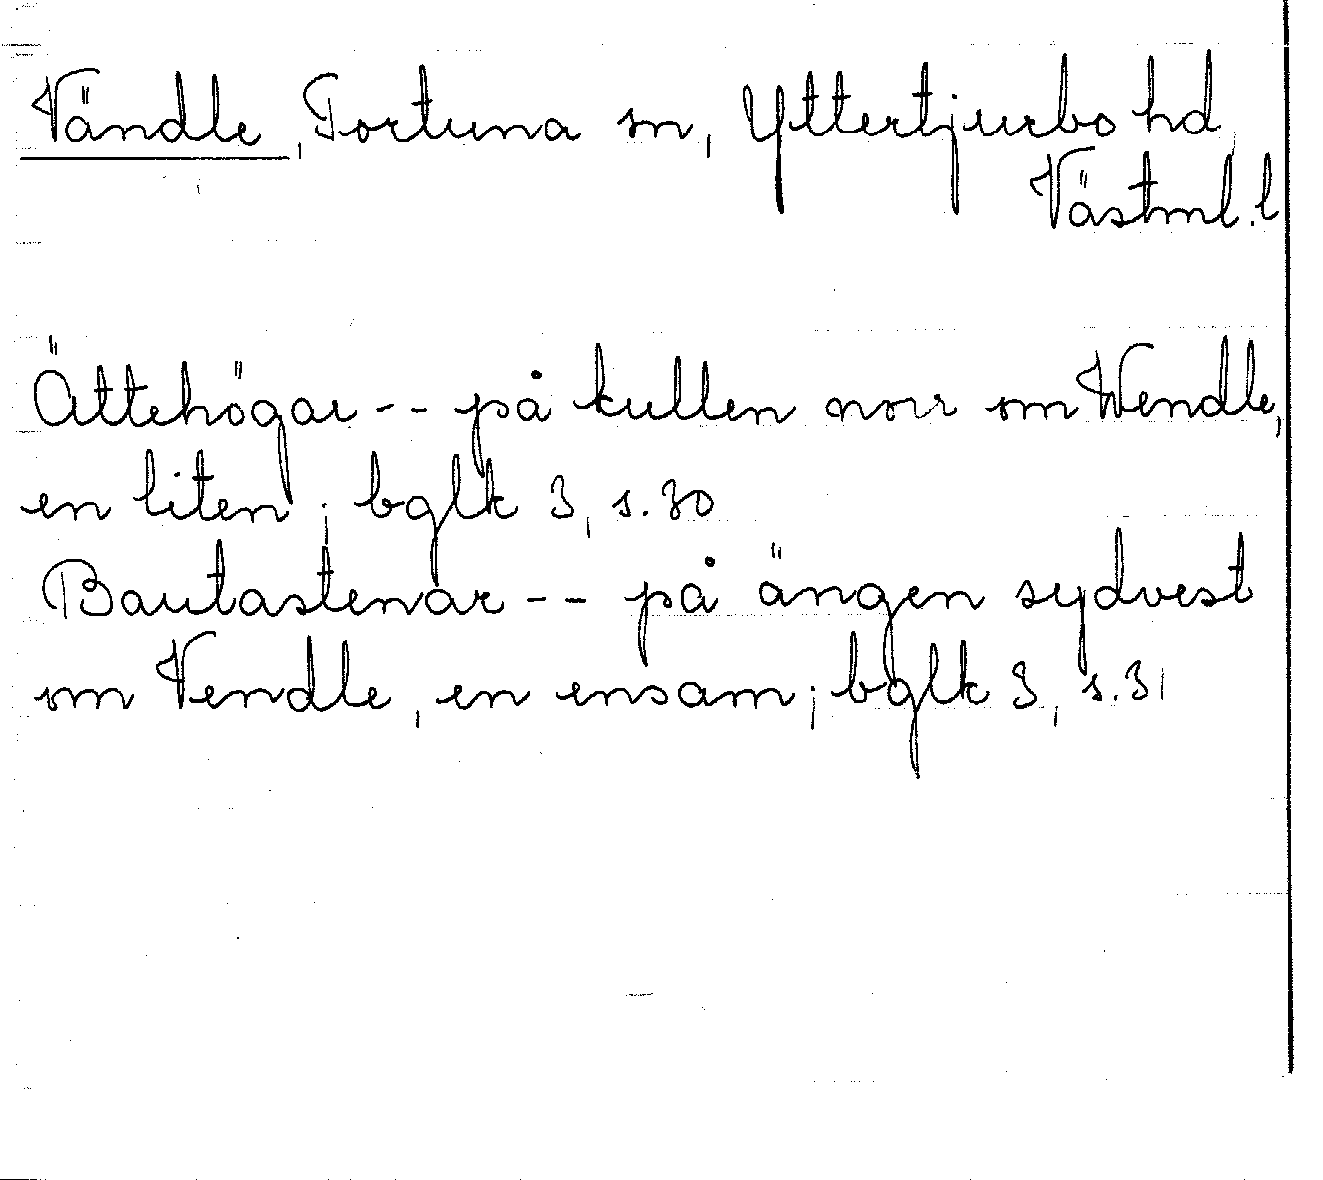 Vändle, Tortuna sn, Yttertjurbo hd,
Västml. l
Ättehögar -- på kullen norr om Wendle,
en liten; bglk 3, s. 30
Bautastenar -- på ängen sydvest
om Vendle, en ensam; bglk 3, s. 31